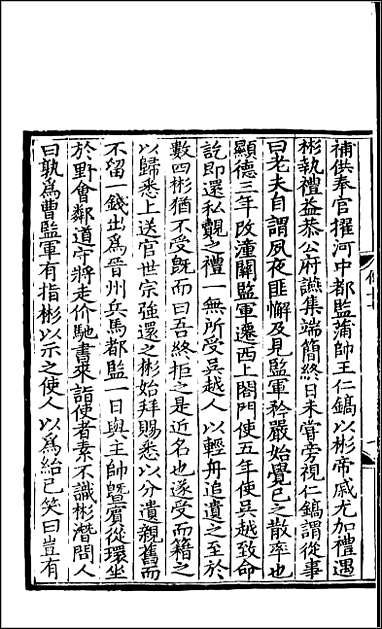 補供奉官擢河中都監蒲帥王仁鎬以彬帝戚尤加禮遇
彬執禮益恭公府讌集端簡終日未嘗旁視仁鎬謂從事
曰老夫自謂夙夜匪懈及見監軍矜嚴始覺已之散率也
顯德三年改潼關監軍遷西上閤門使五年使吳越致命
訖即還私覿之禮一無所受吳越人以輕舟追遺之至於
數四彬猶不受旣而曰吾終拒之是近名也遂受而籍之
以歸悉上送官世宗強還之彬始拜賜悉以分遺親舊而
不留一錢出爲晉州兵馬都監一日與主帥暨賓從環坐
於野會鄰道守將走价馳書來詣使者素不識彬潛問人
曰孰爲曹監軍有指彬以示之使人以爲紿己笑曰豈有